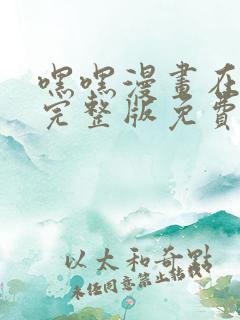 嘿嘿漫畫在
完整版免費
以太和奇點
未經同意禁止轉載